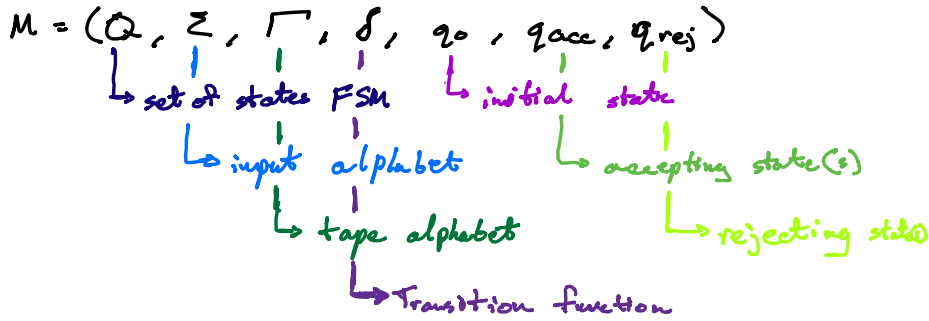 M = (Q, Σ, Γ, δ, q0, qacc, qrej)
set of states FSM
initial state
input alphabet
accepting state(s)
tape alphabet
rejecting state(s)
Transition function